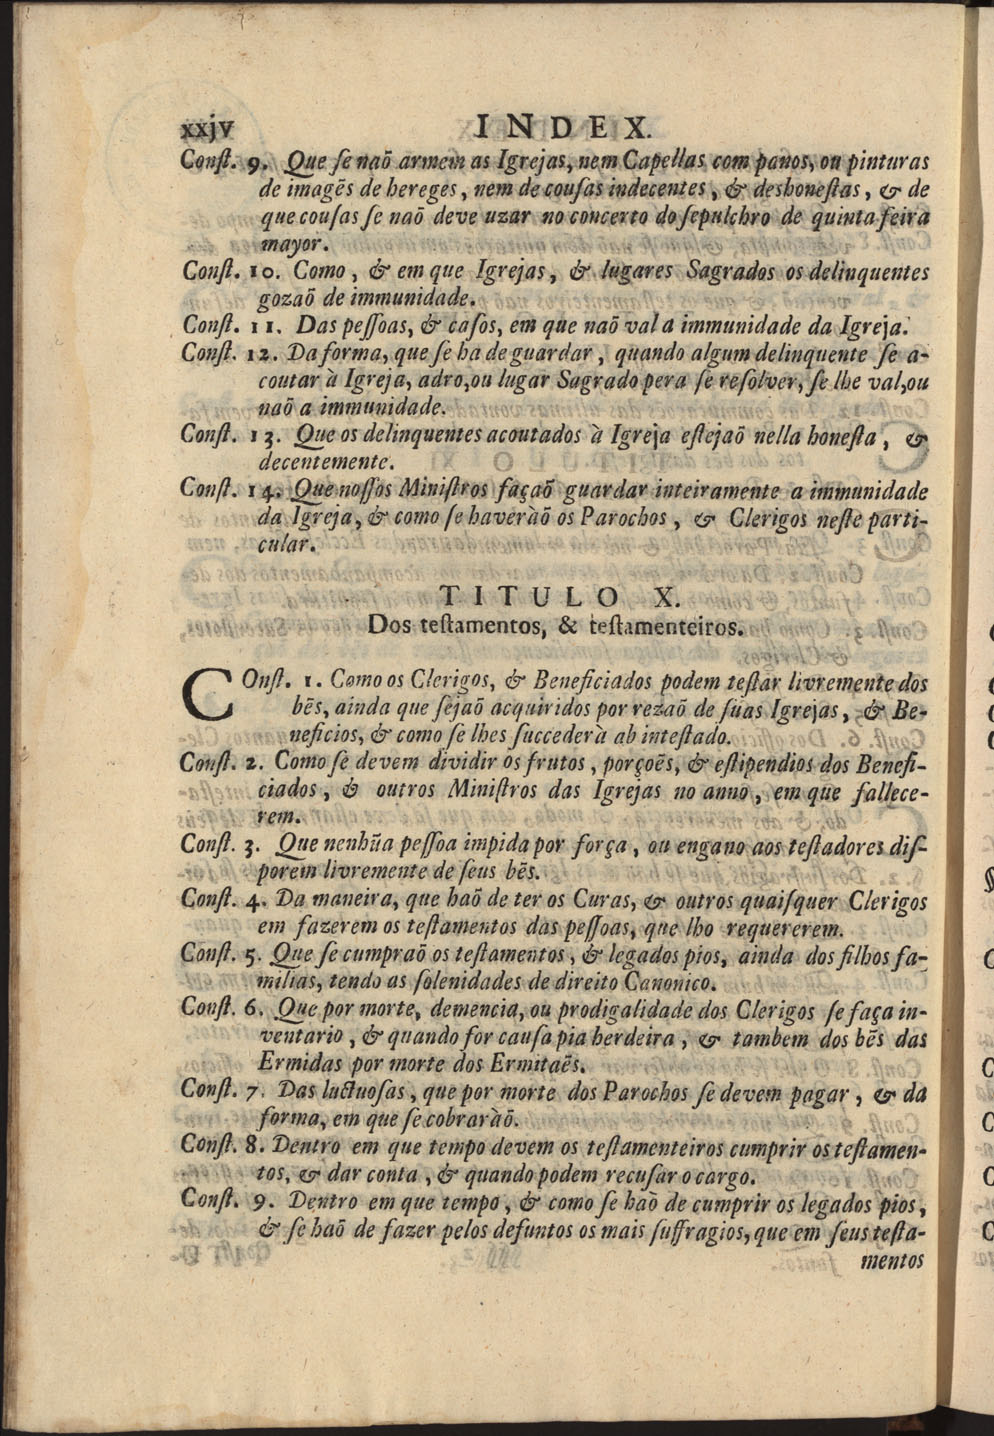 xxjv INDEX.
Conſt. 9. Que ſe naõ armem as Igrejas, nem Capellas com panos, ou pinturas
de imagẽs de hereges, nem de couſas indecentes, & deshoneſtas, & de
que couſas ſe naõ deve uzar no concerto do ſepulchro de quinta feira
mayor.
Conſt. 10. Como, & em que Igrejas, & lugares Sagrados os delinquentes
gozaõ de immunidade.
Conſt. 11. Das peſſoas, & caſos, em que naõ val a immunidade da Igreja.
Conſt. 12. Da forma, que ſe ha de guardar, quando algum delinquente ſe a-
coutar à Igreja, adro, ou lugar Sagrado pera ſe reſolver, ſe lhe val, ou
naõ a immunidade.
Conſt. 13. Que os delinquentes acoutados à Igreja eſtejaõ nella honeſta, &
decentemente.
Conſt. 14. Que noſſos Miniſtros façaõ guardar inteiramente a immunidade
da Igreja, & como ſe haveràõ os Parochos, & Clerigos neſte parti-
cular.
TITULO X.
Dos teſtamentos, & teſtamenteiros.
COnſt. 1. Como os Clerigos, & Beneficiados podem teſtar livremente dos
bẽs, ainda que ſejaõ acquiridos por rezaõ de ſuas Igrejas, & Be-
neficios, & como ſe lhes ſuccederà ab inteſtado.
Conſt. 2. Como ſe devem dividir os frutos, porçoẽs, & eſtipendios dos Benefi-
ciados, & outros Miniſtros das Igrejas no anno, em que fallece-
rem.
Conſt. 3. Que nenhũa peſſoa impida por força, ou engano aos teſtadores diſ-
porem livremente de ſeus bẽs.
Conſt. 4. Da maneira, que haõ de ter os Curas, & outros quaiſquer Clerigos
em fazerem os teſtamentos das peſſoas, que lho requererem.
Conſt. 5. Que ſe cumpraõ os teſtamentos, & legados pios, ainda dos filhos fa-
milias, tendo as ſolenidades de direito Canonico.
Conſt. 6. Que por morte, demencia, ou prodigalidade dos Clerigos ſe faça in-
ventario, & quando for cauſa pia herdeira, & tambem dos bẽs das
Ermidas por morte dos Ermitaẽs.
Conſt. 7. Das luctuoſas, que por morte dos Parochos ſe devem pagar, & da
forma, em que ſe cobraràõ.
Conſt. 8. Dentro em que tempo devem os teſtamenteiros cumprir os teſtamen-
tos, & dar conta, & quando podem recuſar o cargo.
Conſt. 9. Dentro em que tempo, & como ſe haõ de cumprir os legados pios,
& ſe haõ de fazer pelos defuntos os mais ſuffragios, que em ſeus teſta-
mentos